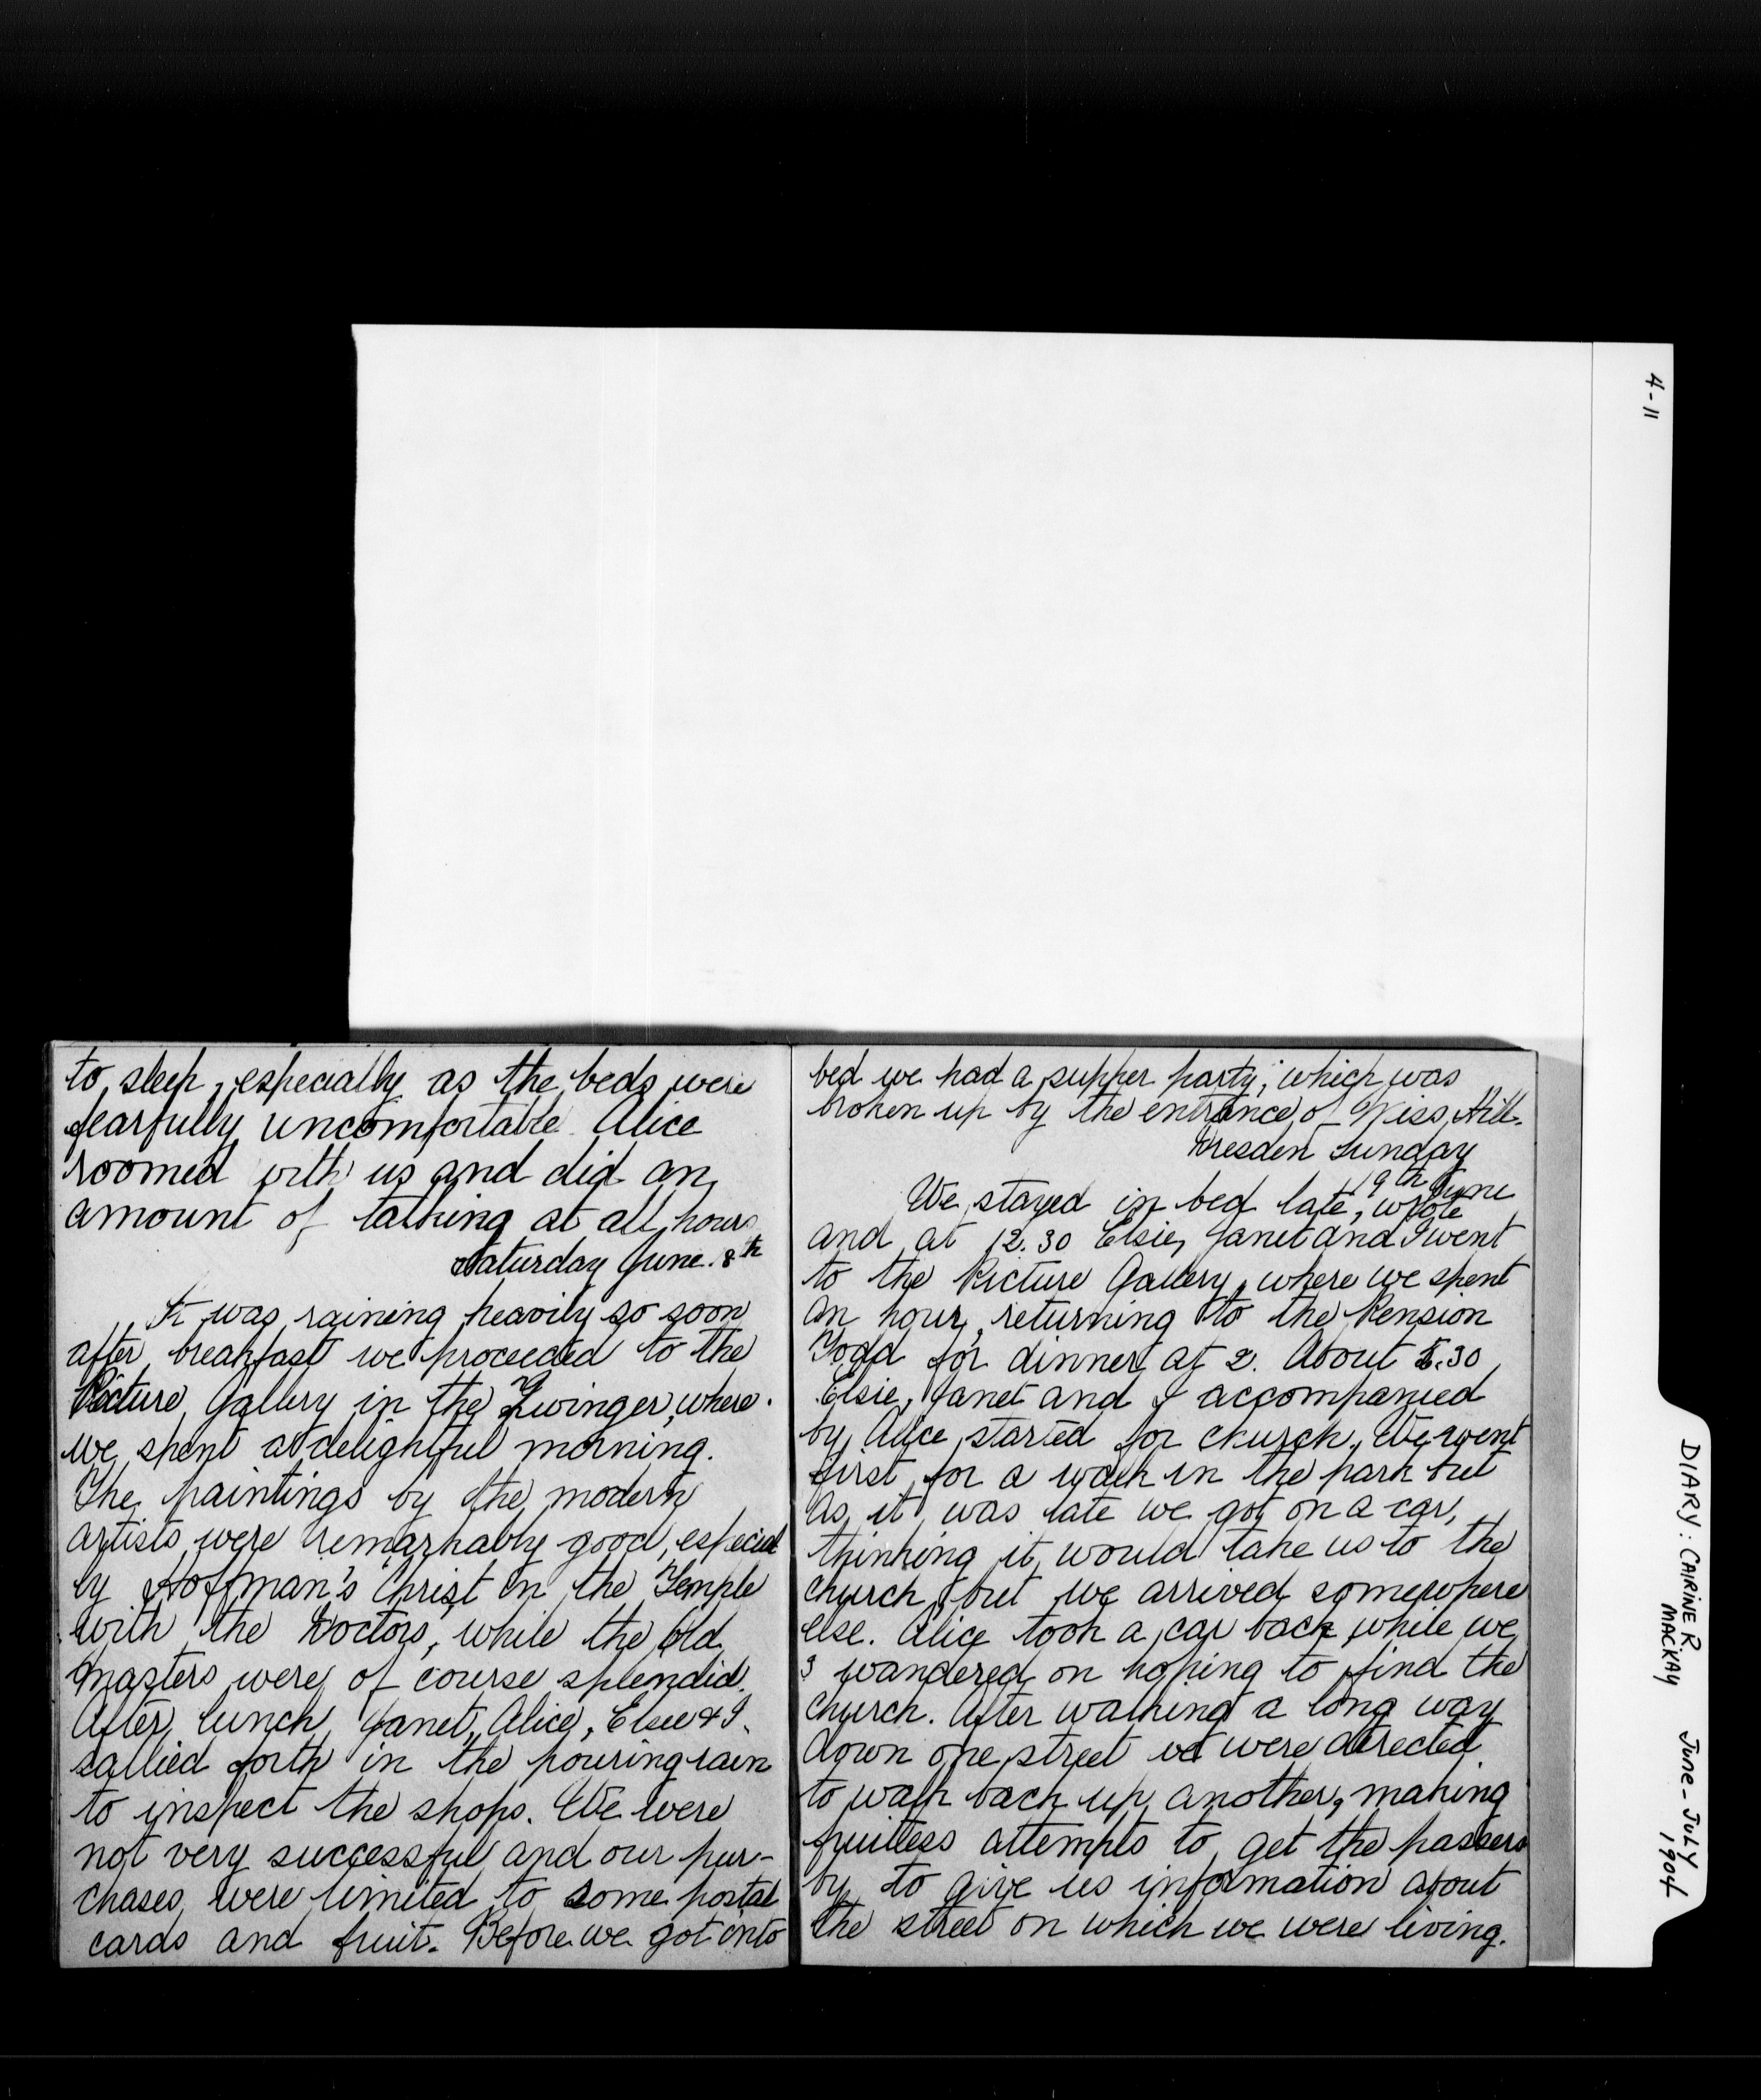 to sleep, especially as the beds were
fearfully uncomfortable. Alice
roomed with us and did an
amount of talking at all hours
Saturday June. 8th
It was raining heavily so soon
after breakfast we proceeded to the
Picture Gallery in the Zwinger, where
we spent a delightful morning.
The paintings by the modern
artists were remarkably good, especial
ly Hoffman's Christ in the Temple
with the Doctors, while the old
masters were of course splendid.
After lunch Janet, Alice, Elsie & I
sallied forth in the pouring rain
to inspect the shops. We were
not very successful and our pur-
chases were limited to some postal
cards and fruit. Before we got into
bed we had a supper party, which was
broken up by the entrance of Miss Hill.
Dresden Sunday
19th June
We stayed in bed late, wrote
and at 12.30 Elsie, Janet and I went
to the Picture Gallery, where we spent
an hour, returning to the Pension
Todd for dinner at 2. About 5.30
Elsie, Janet and I accompanied
by Alice started for church. We went
first for a walk in the park but
as it was late we got on a car,
thinking it would take us to the
church, but we arrived somewhere
else. Alice took a car back while we
3 wandered on hoping to find the
church. After walking a long way
down one street we were directed
to walk back up another, making
fruitless attempts to get the passers
by to give us information about
the street on which we were living.
4-11
DIARY: CAIRINE R. MACKAY
June - July 1904